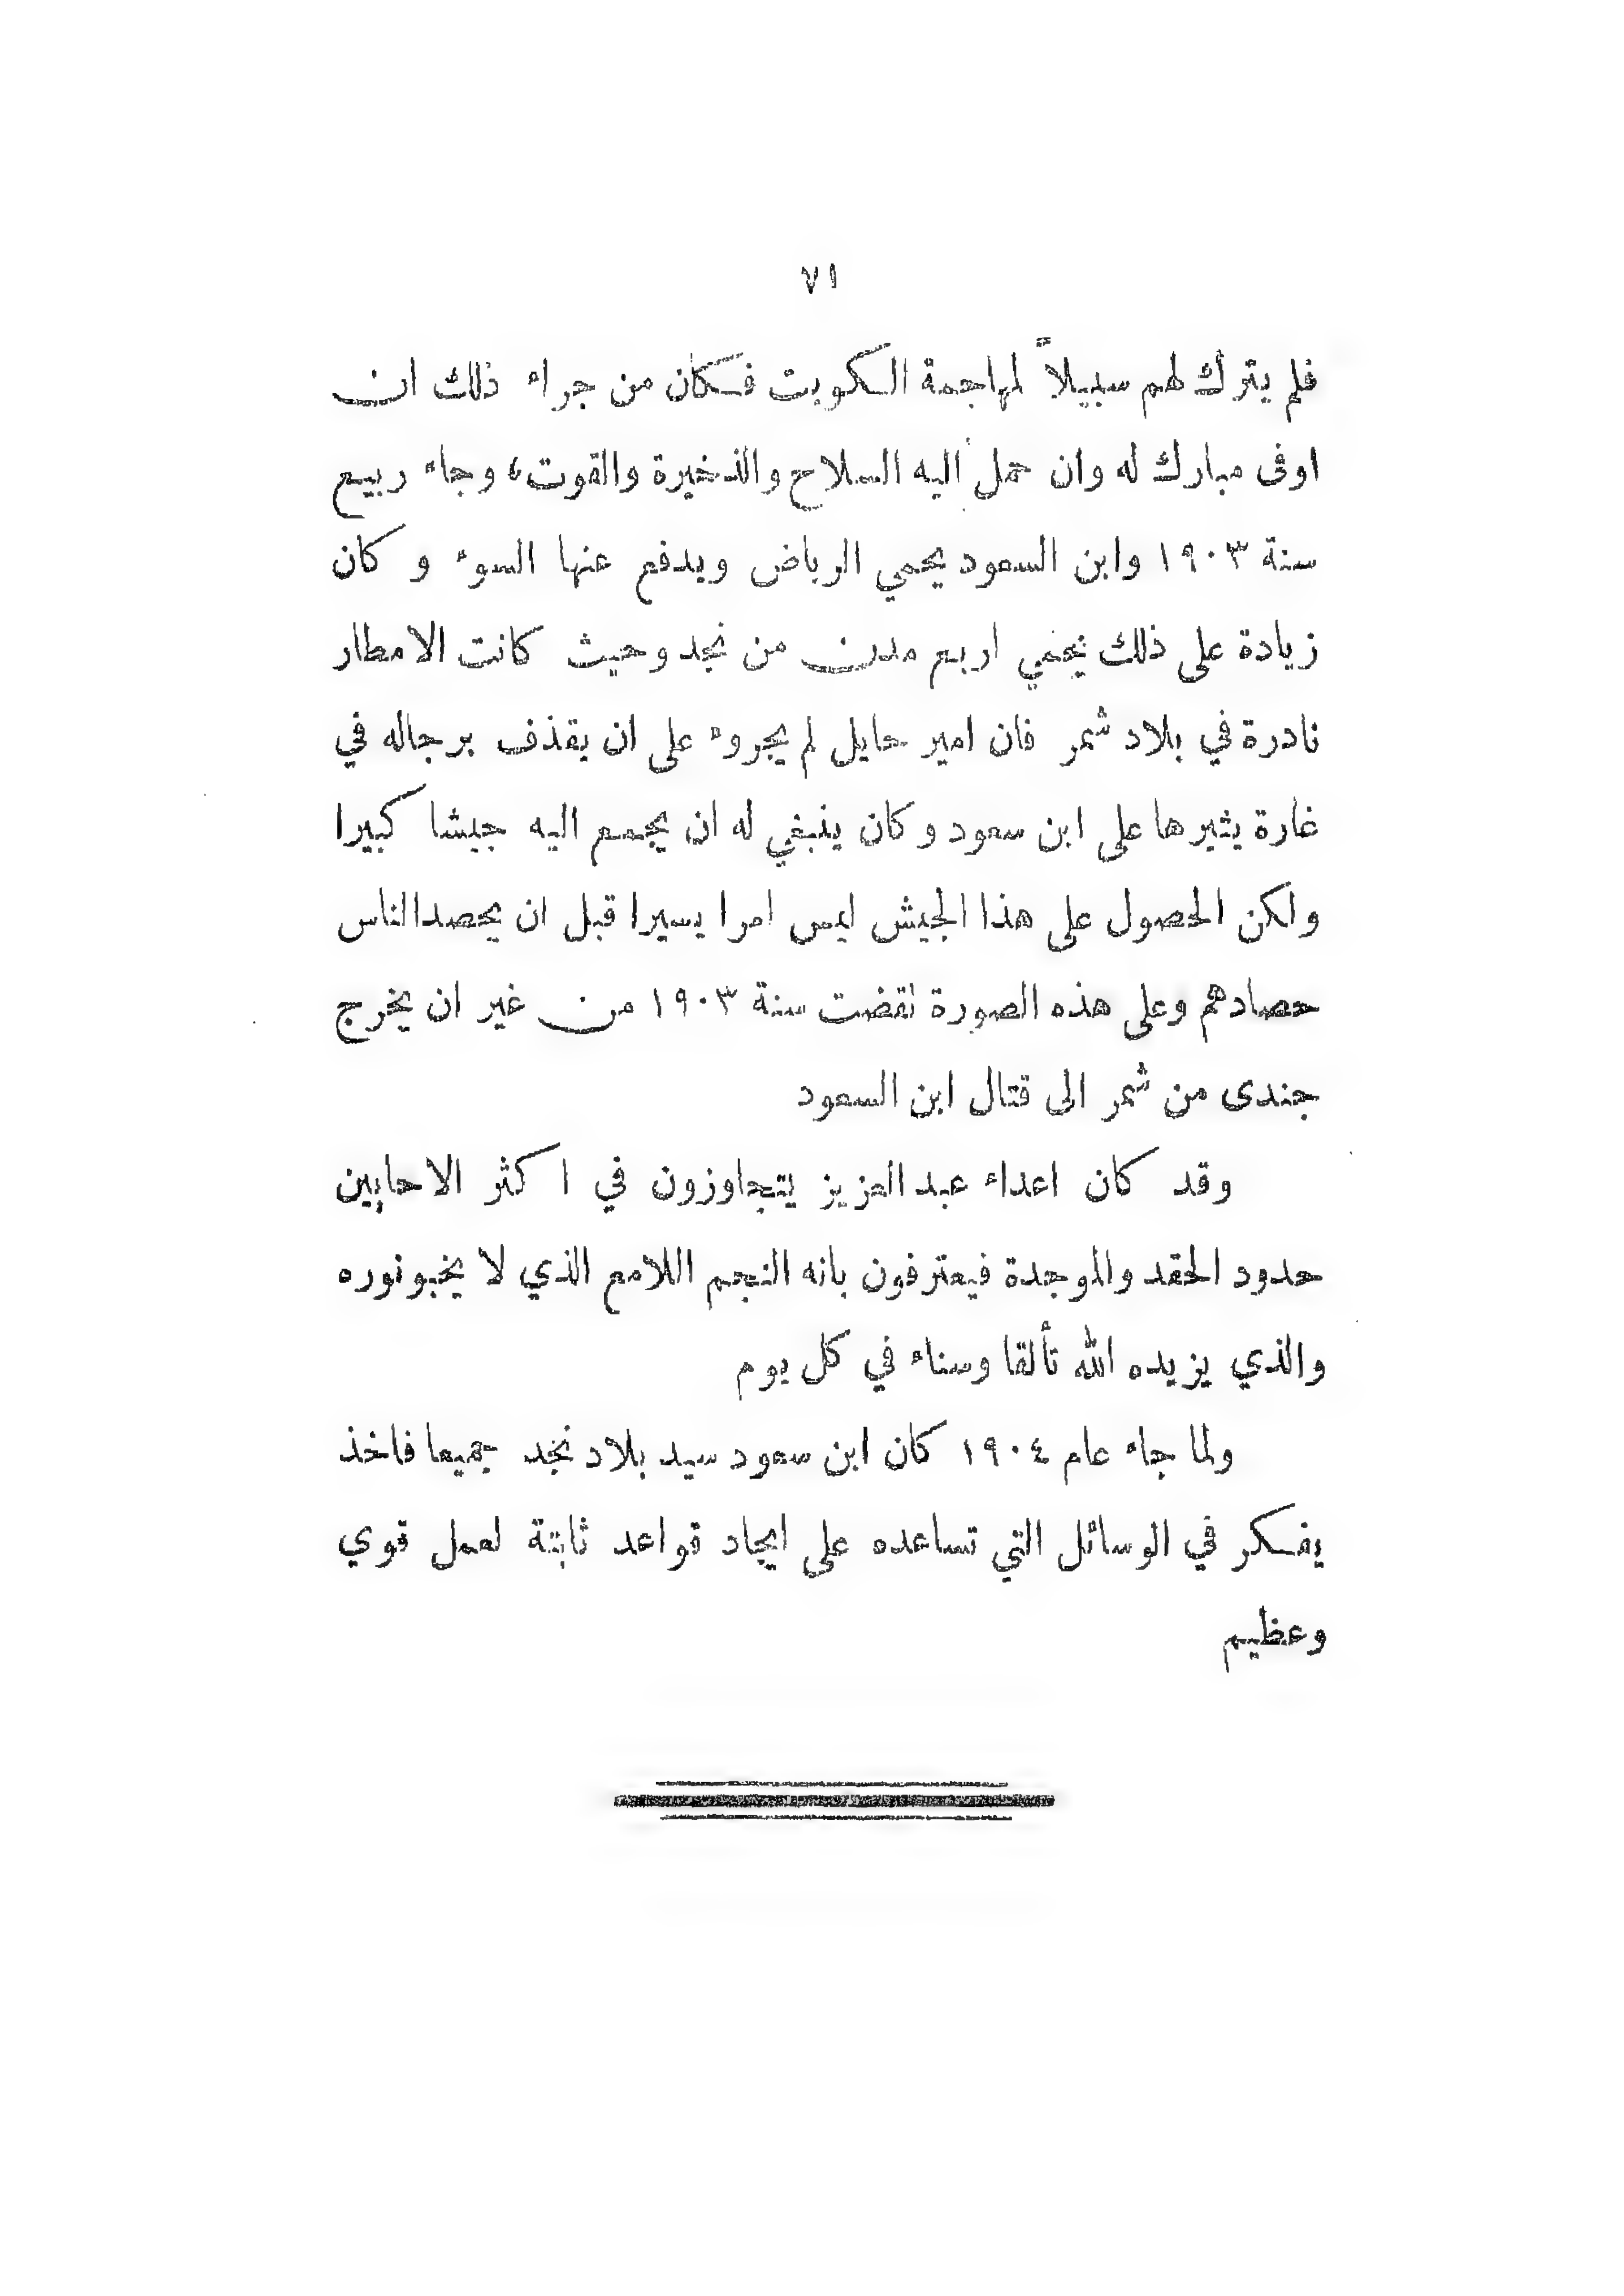 ٧١
فلم يترك لهم سبيلاً لمهاجمة الكويت فكان من جراء ذلك ان
اوفى مبارك له وان حمل اليه السلاح والذخيرة والقوت، وجاء ربيع
سنة ١٩٠٣ وابن السعود يحمي الرياض ويدفع عنها السوء وكان
زيادة على ذلك يحمي اربع مدن من نجد وحيث كانت الامطار
نادرة في بلاد شمر فان امير حايل لم يجروء على ان يقذف برجاله في
غارة يثيرها على ابن سعود وكان ينبغي له ان يجمع اليه جيشا كبيرا
ولكن الحصول على هذا الجيش ليس امرا يسيرا قبل ان يحصد الناس
حصادهم وعلى هذه الصورة نقضت سنة ١٩٠٣ من غير ان يخرج
جندى من شمر الى قتال ابن السعود
وقد كان اعداء عبد العزيز يتجاوزون في اكثر الاحايين
حدود الحقد والموجدة فيعترفون بانه النجم اللامع الذي لا يخبو نوره
والذي يزيده الله تألقا وسناء في كل يوم
ولما جاء عام ١٩٠٤ كان ابن سعود سيد بلاد نجد جميعا فاخذ
يفكر في الوسائل التي تساعده على ايجاد قواعد ثابتة لعمل قوي
وعظيم